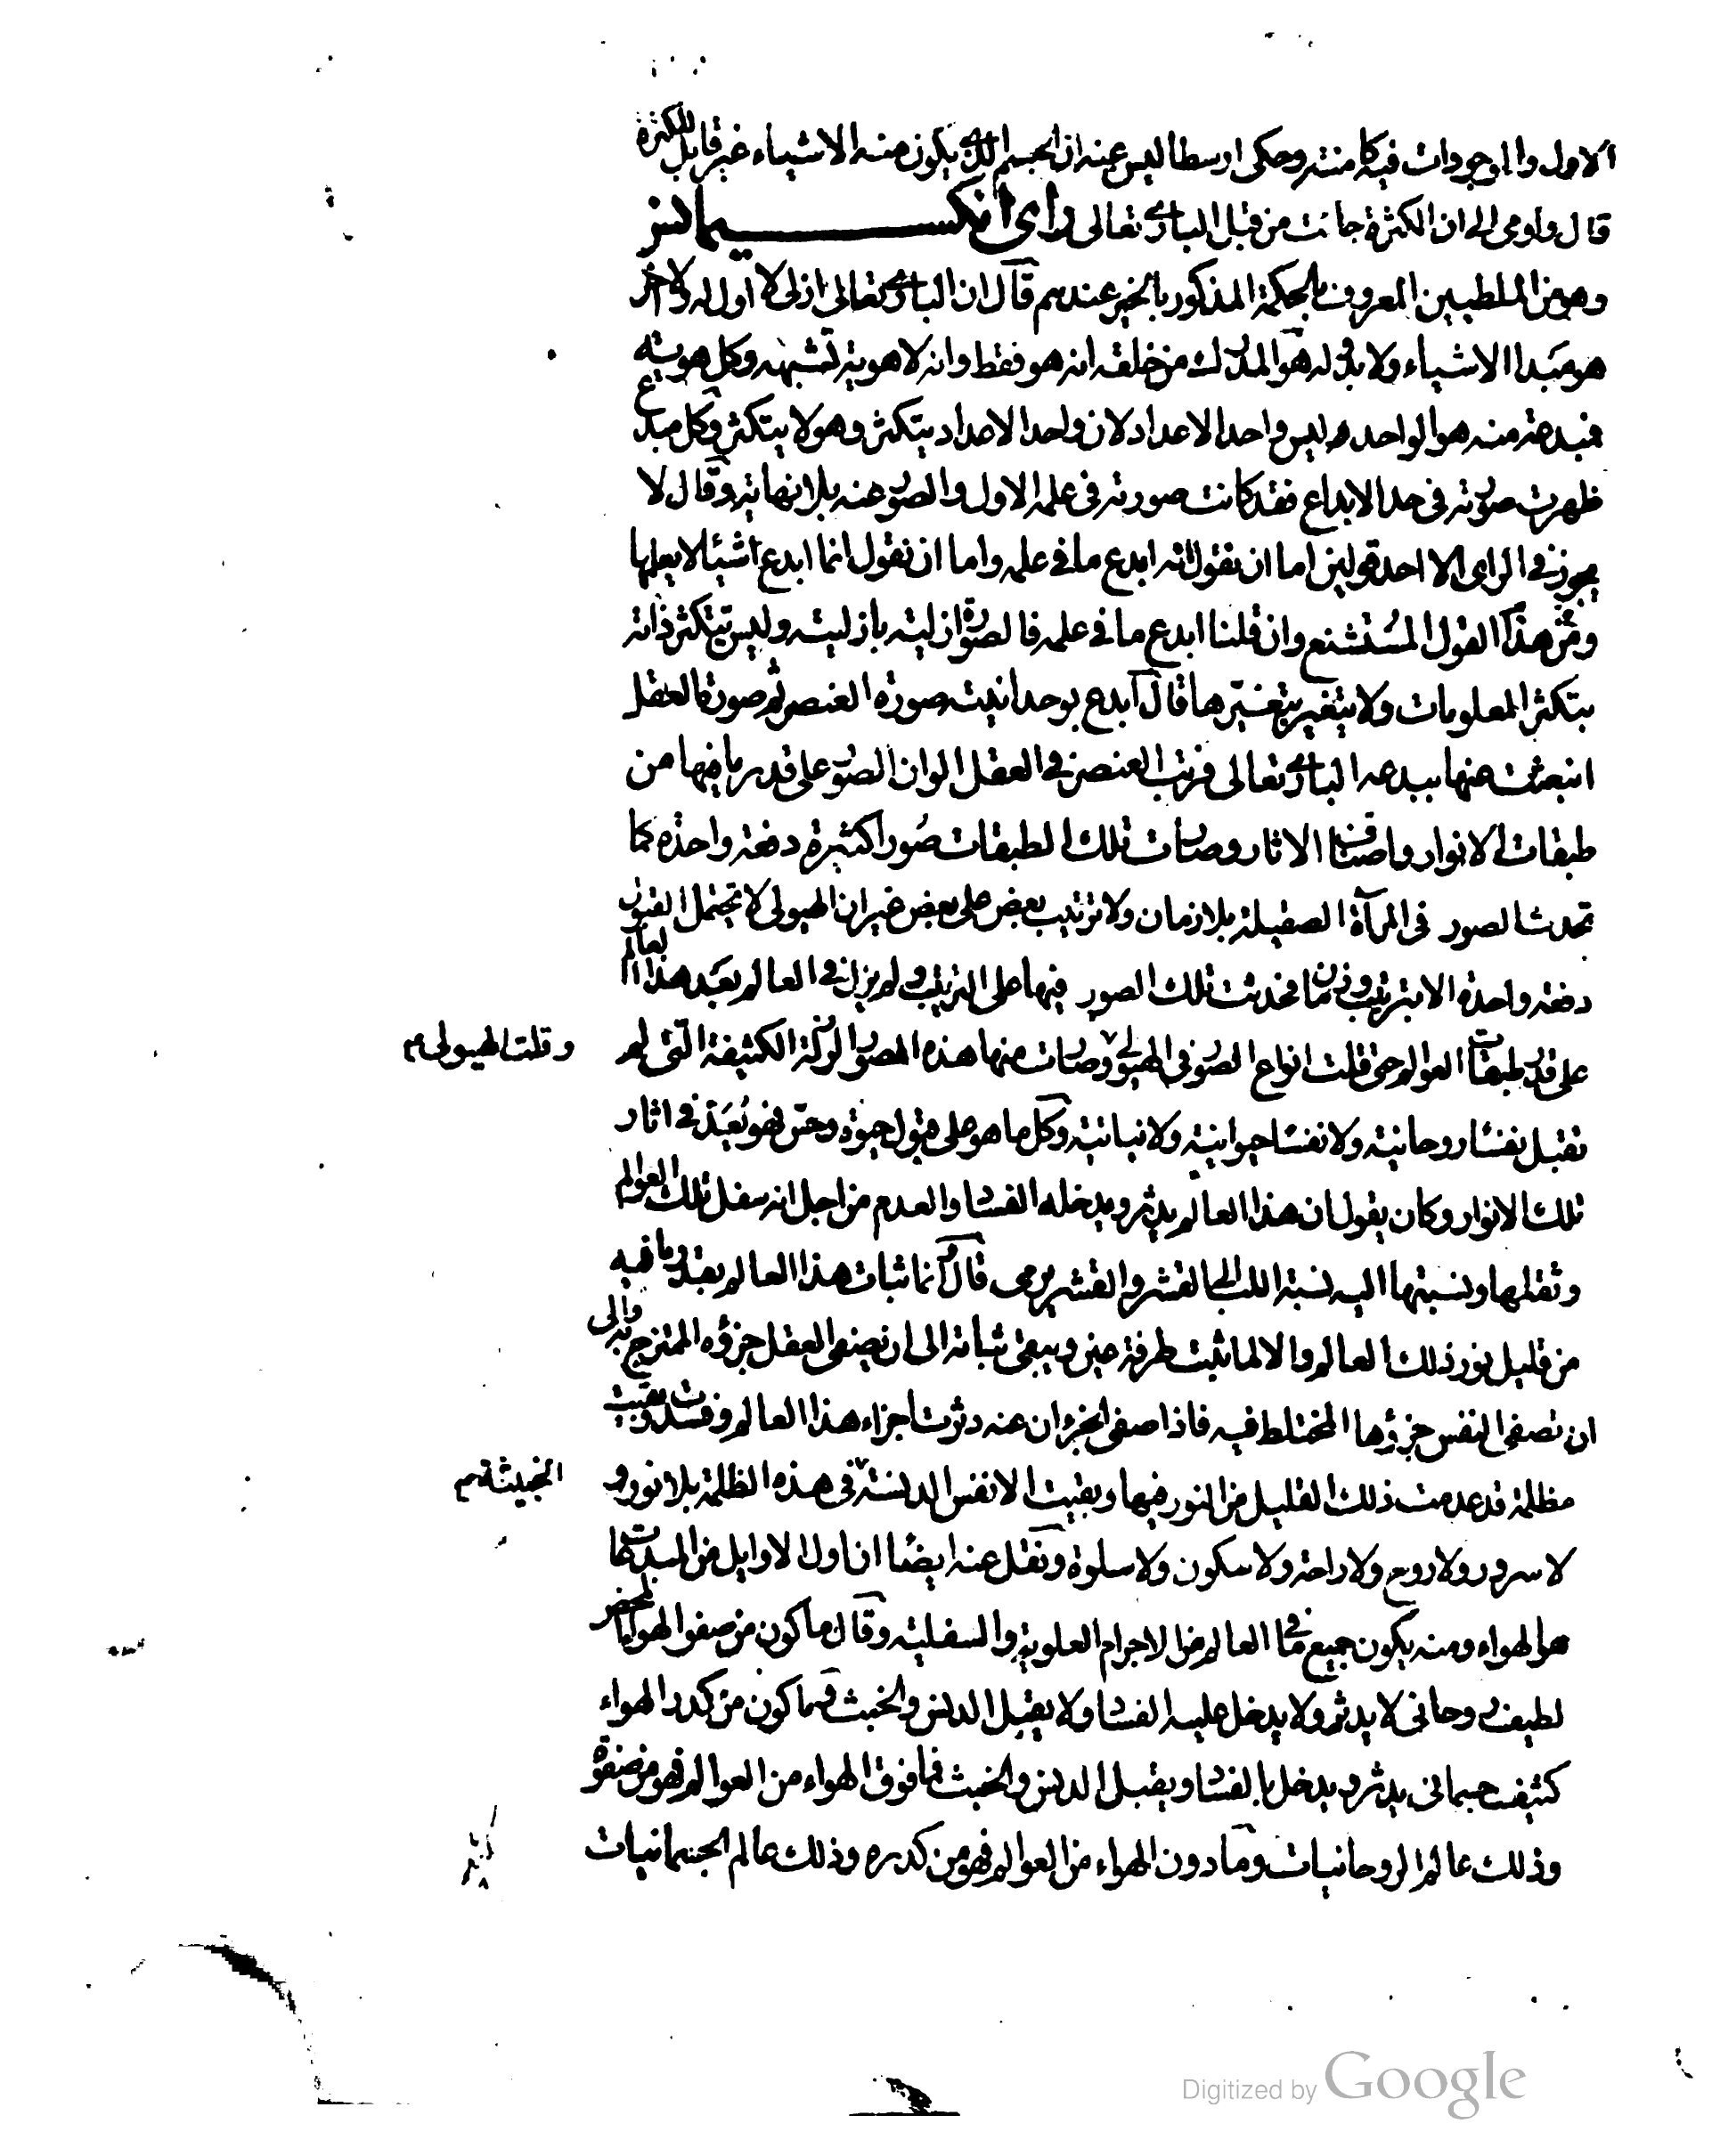 الاول والموجودات فيه كامنة وحكى ارسطاليس عنه ان الجسم الذي يكون منه الاشياء غير قابل للكثرة
قال واومى الى ان الكثرة جاءت من قبل الباري تعالى راى انكسيمانس
وهو من الملطيين المعروف بالحكمة المذكور بالخير عندهم قال ان الباري تعالى ازلى لا اول له ولا اخر
هو مبدا الاشياء ولا بدو له هو المدرك من خلقه انه هو فقط وانه لا هوية تشبهه وكل هوية
فمبدعة منه هو الواحد ليس واحد الاعداد لان واحد الاعداد يتكثر وهو لا يتكثر وكل مبدع
ظهرت صورته فى حد الابداع فقد كانت صورته فى علمه الاول والصور عنده بلا نهاية وقال لا
يجوز فى الراى الا احد قولين اما ان نقول انه ابدع ما فى علمه واما ان نقول انما ابدع اشياء لا يعلمها
وهذا القول المستشنع وان قلنا ابدع ما فى علمه فالصورة ازلية بازليته وليس يتكثر ذاته
بتكثر المعلومات ولا يتغير بتغيرها قال ابدع بوحدانيته صورة العنصر ثم صورة العقل
انبعثت عنها ببدعه الباري تعالى فرتب العنصر فى العقل الوان الصور على قدر ما فيها من
طبقات الانوار واصناف الاثار وصارت تلك الطبقات صورا كثيرة دفعة واحدة كما
تحدث الصور فى المرآة الصقيلة بلا زمان ولا ترتيب بعض على بعض غير ان الهيولى لا تحتمل القبول
دفعة واحدة الا بترتيب وزمان فحدثت تلك الصور فيها على الترتيب ولم يزل فى العالم بعد هذا العالم
على قدر طبقات العوالم حتى قلت انواع الصور فى الهيولى وصارت منها هذه الصور الرذلة الكثيفة التى لم
وقلت الهيولى م
تقبل نفسا روحانية ولا نفسا حيوانية ولا نباتية وكل ما هو على قبول حيوة وحس فهو بعد فى اثار
تلك الانوار وكان يقول ان هذا العالم يدثر ويدخله الفساد والعدم من اجل انه سفل تلك العوالم
وثقلها ونسبتها اليه نسبة اللب الى القشر والقشر يرمى قال انما ثبات هذا العالم بقدر ما فيه
من قليل نور ذلك العالم والا لما ثبت طرفة عين ويبقى ثباته الى ان يصفى العقل جزؤه الممتزج به والى
ان تصفى النفس جزؤها المختلط فيه فاذا صفى الجزءان عنه دثرت اجزاء هذا العالم وفسدت وبقيت
مظلمة قد عدمت ذلك القليل من النور فيها وبقيت الانفس الدنسة فى هذه الظلمة بلا نور و
الخبيثة م
لا سرور ولا روح ولا راحة ولا سكون ولا سلوة ونقل عنه ايضا ان اول الاوايل من المبدعات
هو الهواء ومنه يكون جميع ما فى العالم من الاجرام العلوية والسفلية وقال ما كون من صفو الهواء المحض
لطيف روحانى لا يدثر ولا يدخل عليه الفساد ولا يقبل الدنس والخبث وما كون من كدر الهواء
كثيف جسمانى يدثر ويدخل الفساد ويقبل الدنس والخبث فما فوق الهواء من العوالم فهو من صفوه
وذلك عالم الروحانيات وما دون الهواء من العوالم فهو من كدره وذلك عالم الجسمانيات
Digitized by Google